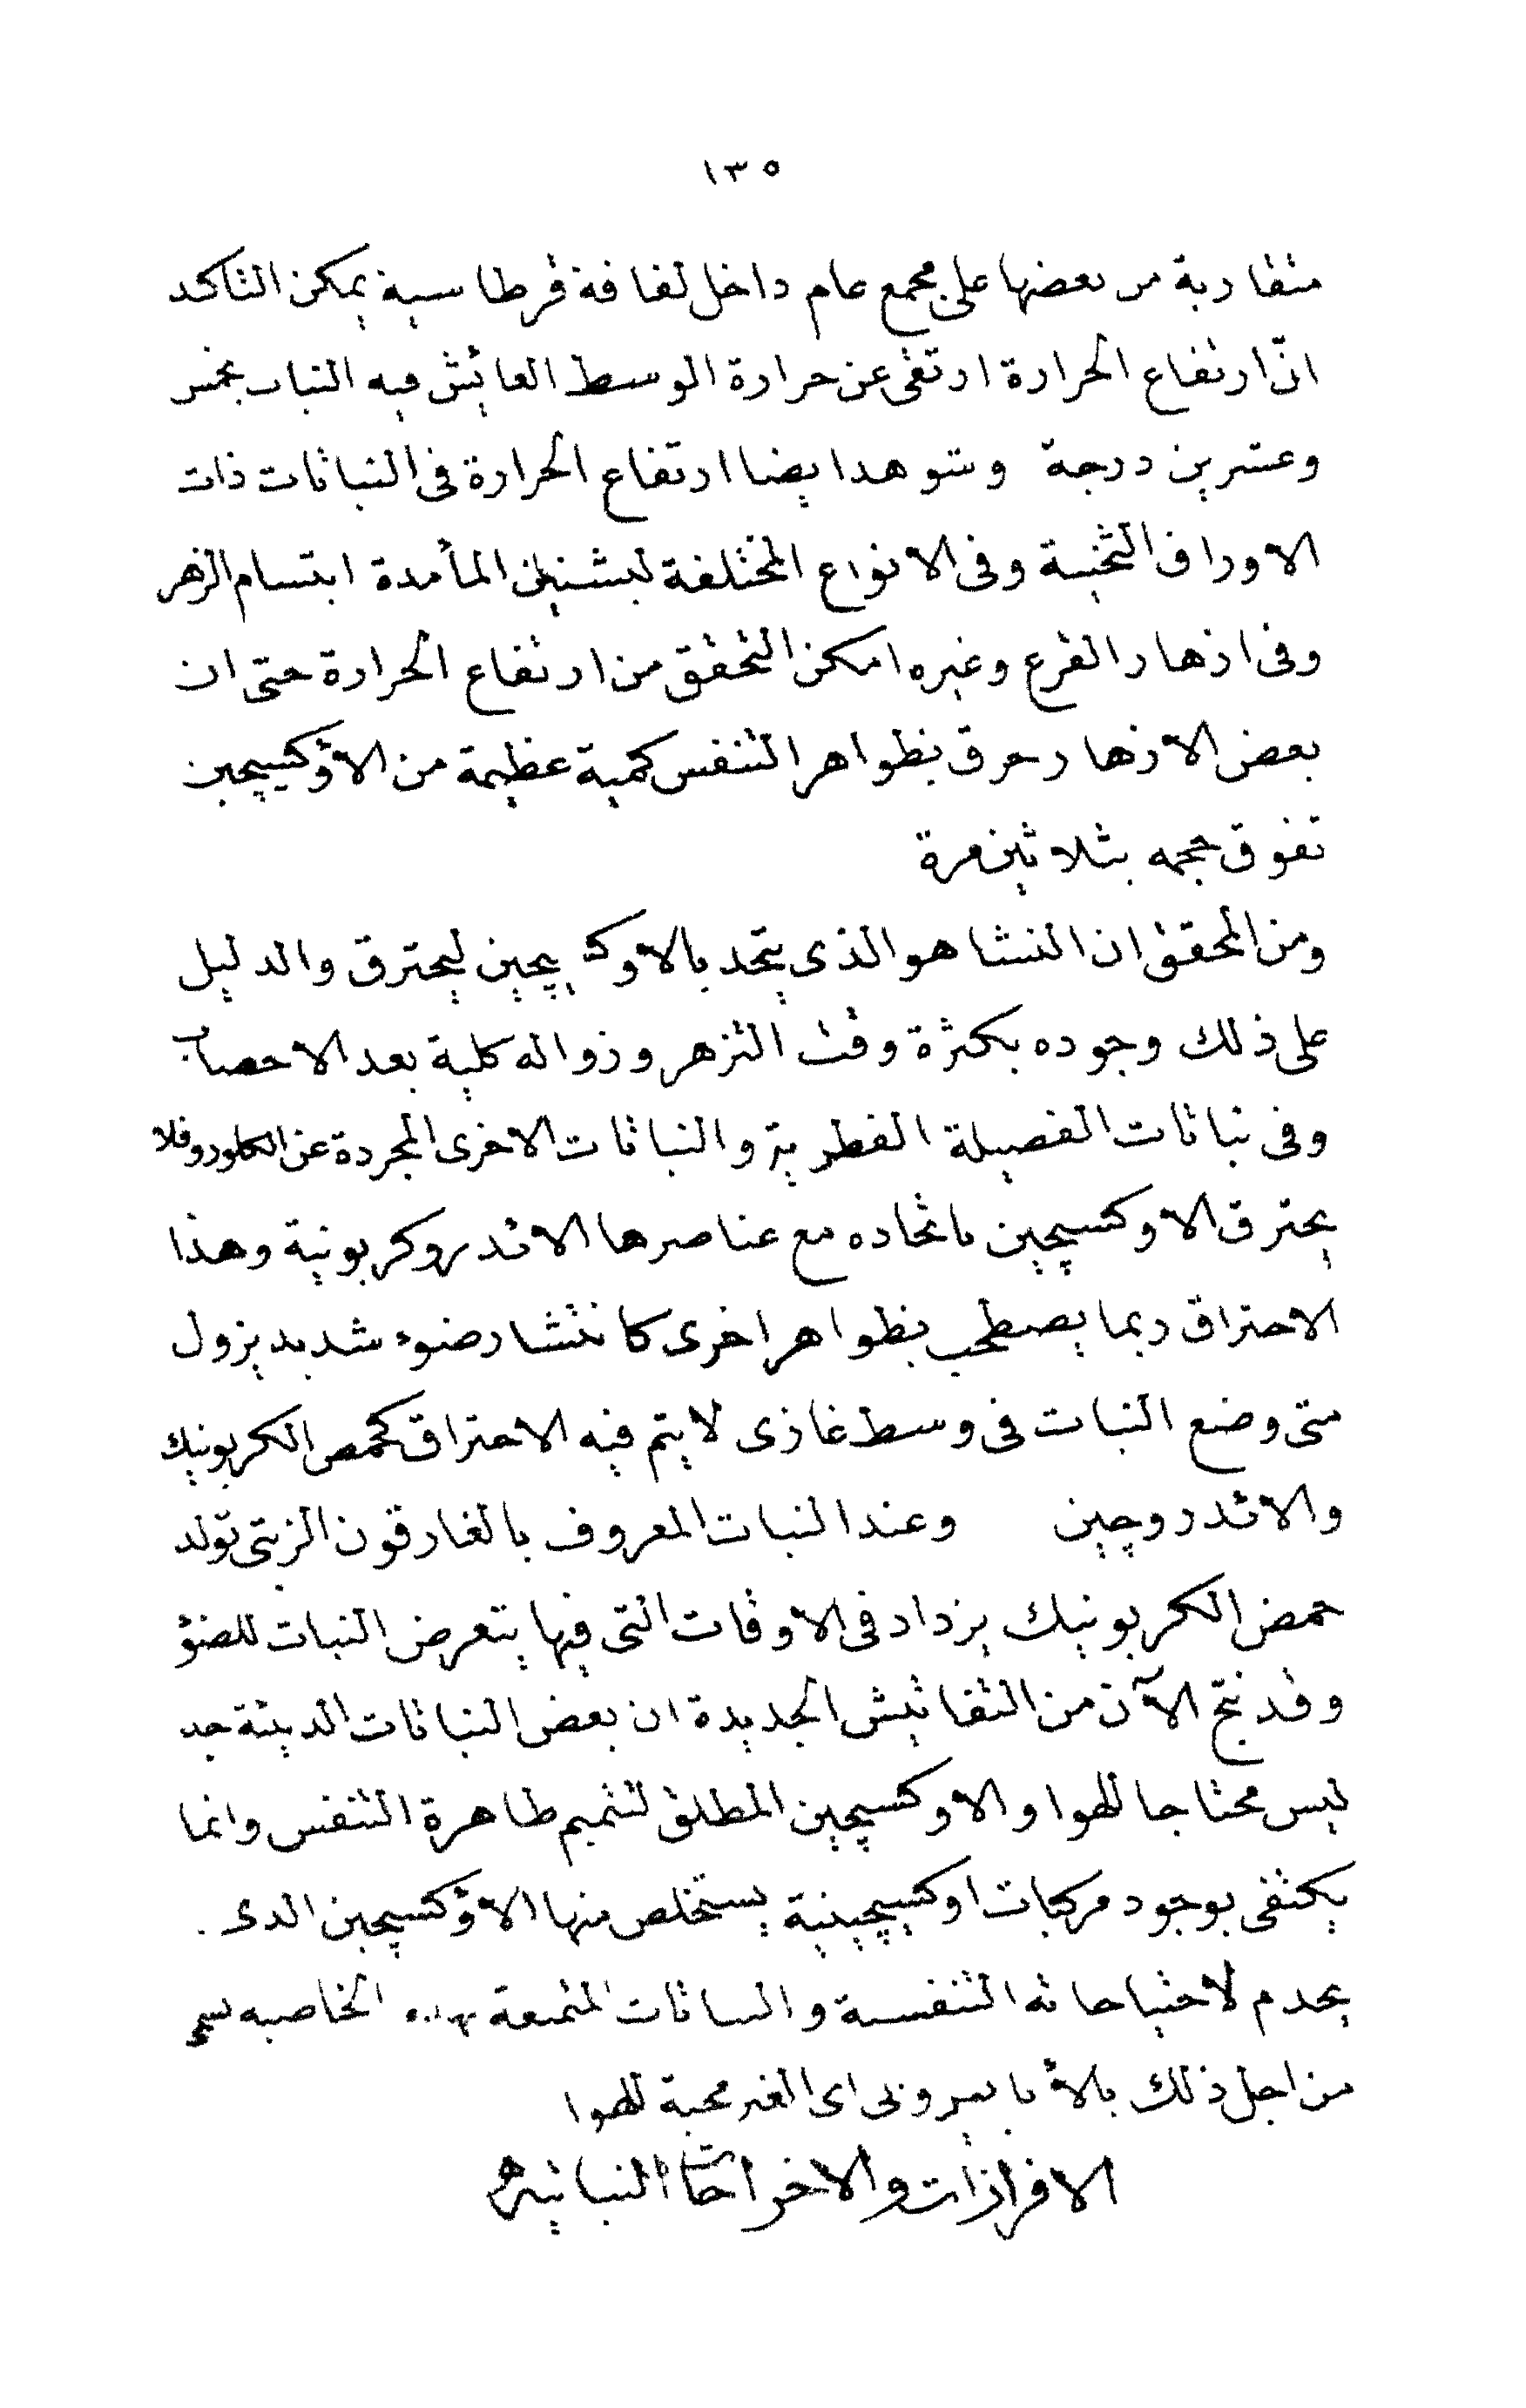 ١٣٥
متقاربة من بعضها على مجمع عام داخل لفافة قرطاسية يمكن التاكد
انّ ارتفاع الحرارة ارتقى عن حرارة الوسط العائيش فيه النبات بخمس
وعشرين درجة وشوهد ايضا ارتفاع الحرارة فى النباتات ذات
الاوراق الثخينة وفى الانواع المختلفة لبشنين المأمدة ابتسام الزهر
وفى ازهار القرع وغيره امكن التحقق من ارتفاع الحرارة حتى ان
بعض الازهار حرق بظواهر التنفس كمية عظيمة من الاؤكسيچين
تفوق حجمه بثلاثين مرة
ومن المحقق ان النشا هو الذى يتحد بالاوكسيچين ليحترق والدليل
على ذلك وجوده بكثرة وقت التزهر وزواله كلية بعد الاخصاب
وفى نباتات الفصيلة الفطرية والنباتات الاخرى المجردة عن الكلوروفلا
يحترق الاوكسيچين باتحاده مع عناصرها الاندروكربونية وهذا
الاحتراق ربما يصطحب بظواهر اخرى كانتشار ضوء شديد يزول
متى وضع النبات فى وسط غازى لا يتم فيه الاحتراق كحمص الكربونيك
والاندروچين وعند النبات المعروف بالغارقون الزيتى تولد
حمض الكربونيك يزداد فى الاوقات التى فيها يتعرض النبات للضؤ
وقد نتج الآن من التفاتيش الجديدة ان بعض النباتات الدنيئة جد
ليس محتاجا للهوا والاوكسيچين المطلق لتتميم ظاهرة التنفس وانما
يكتفى بوجود مركبات اوكسيچينية يستخلص منها الاؤكسيچين الدى
يخدم لاحتياجاته التنفسة والنباتات المتمتعة بهذه الخاصيه سمى
من اجل ذلك بالأنايروبى اى الغير محبة للهوا
الافرازات والاخراجات النباتيه